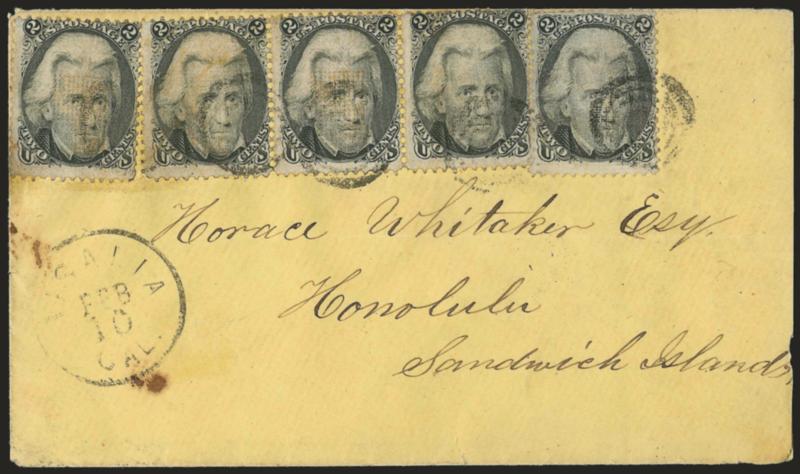 2 POSTAGE 2
TWO CENTS
U S
2 POSTAGE 2
TWO CENTS
U S
2 POSTAGE 2
TWO CENTS
U S
2 POSTAGE 2
TWO CENTS
U S
2 POSTAGE 2
TWO CENTS
U S
Horace Whitaker Esq.
Honolulu
Sandwich Islands
FEB
10
CAL.